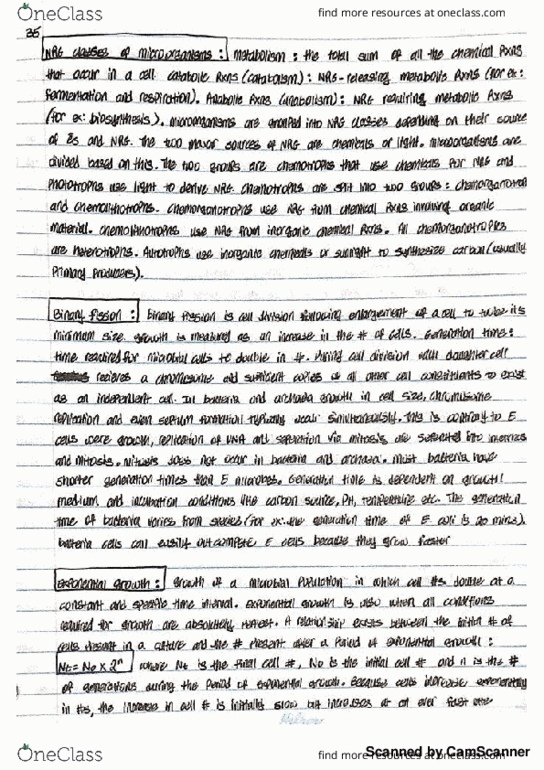 OneClass
find more resources at oneclass.com
35
NRG classes of microorganisms: metabolism: the total sum of all the chemical Rxns
that occur in a cell. catabolic Rxns (catabolism): NRG-releasing metabolic Rxns (for ex:
fermentation and respiration). Anabolic Rxns (anabolism): NRG requiring metabolic Rxns
(for ex: biosynthesis). microorganisms are grouped into NRG classes depending on their source
of and NRG. The two major sources of NRG are chemicals or light. microorganisms are
divided based on this. The two groups are chemotrophs that use chemicals for NRG and
Phototrophs use light to derive NRG. chemotrophs are split into two groups: chemorganotroph
and chemolithotrophs. chemorganotrophs use NRG from chemical Rxns involving organic
material. chemolithotrophs use NRG from inorganic chemical Rxns. All chemorganotrophs
are heterotrophs. Autotrophs use inorganic chemicals or sunlight to synthesize carbon (usually
Primary Producers).
Binary Fission: Binary fission is cell division following enlargement of a cell to twice its
minimum size. growth is measured as an increase in the # of cells. Generation time:
time required for microbial cells to double in #. During cell division each daughter cell
recieves a chromosome and sufficient copies of all other cell constituents to exist
as an independent cell. In bacteria and archaea growth in cell size, chromosome
replication and even septum formation typically occur simultaneously. This is contrary to E
cells were growth, replication of DNA and separation via mitosis are separated into interphase
and mitosis. mitosis does not occur in bacteria and archaea. most bacteria have
shorter generation times than E microbes. Generation time is dependent on growth
medium and incubation conditions like carbon source, PH, temperature etc. The generation
time of bacteria varies from species (for ex: the generation time of E coli is 20 mins).
bacteria cells can easily outcompete E cells because they grow faster
Exponential growth: Growth of a microbial population in which cell #s double at a
constant and specific time interval. exponential growth is also when all conditions
required for growth are absolutely A relationship exists between the initial # of
cells present in a culture and the # present after a Period of exponential growth:
Nt = No x 2^n where Nt is the final cell #, No is the initial cell # and n is the #
of generations during the Period of exponential growth. Because cells increase exponentially
in #s, the increase in cell # is initially slow but increases at an ever fast
OneClass
find more resources at oneclass.com
Scanned by CamScanner